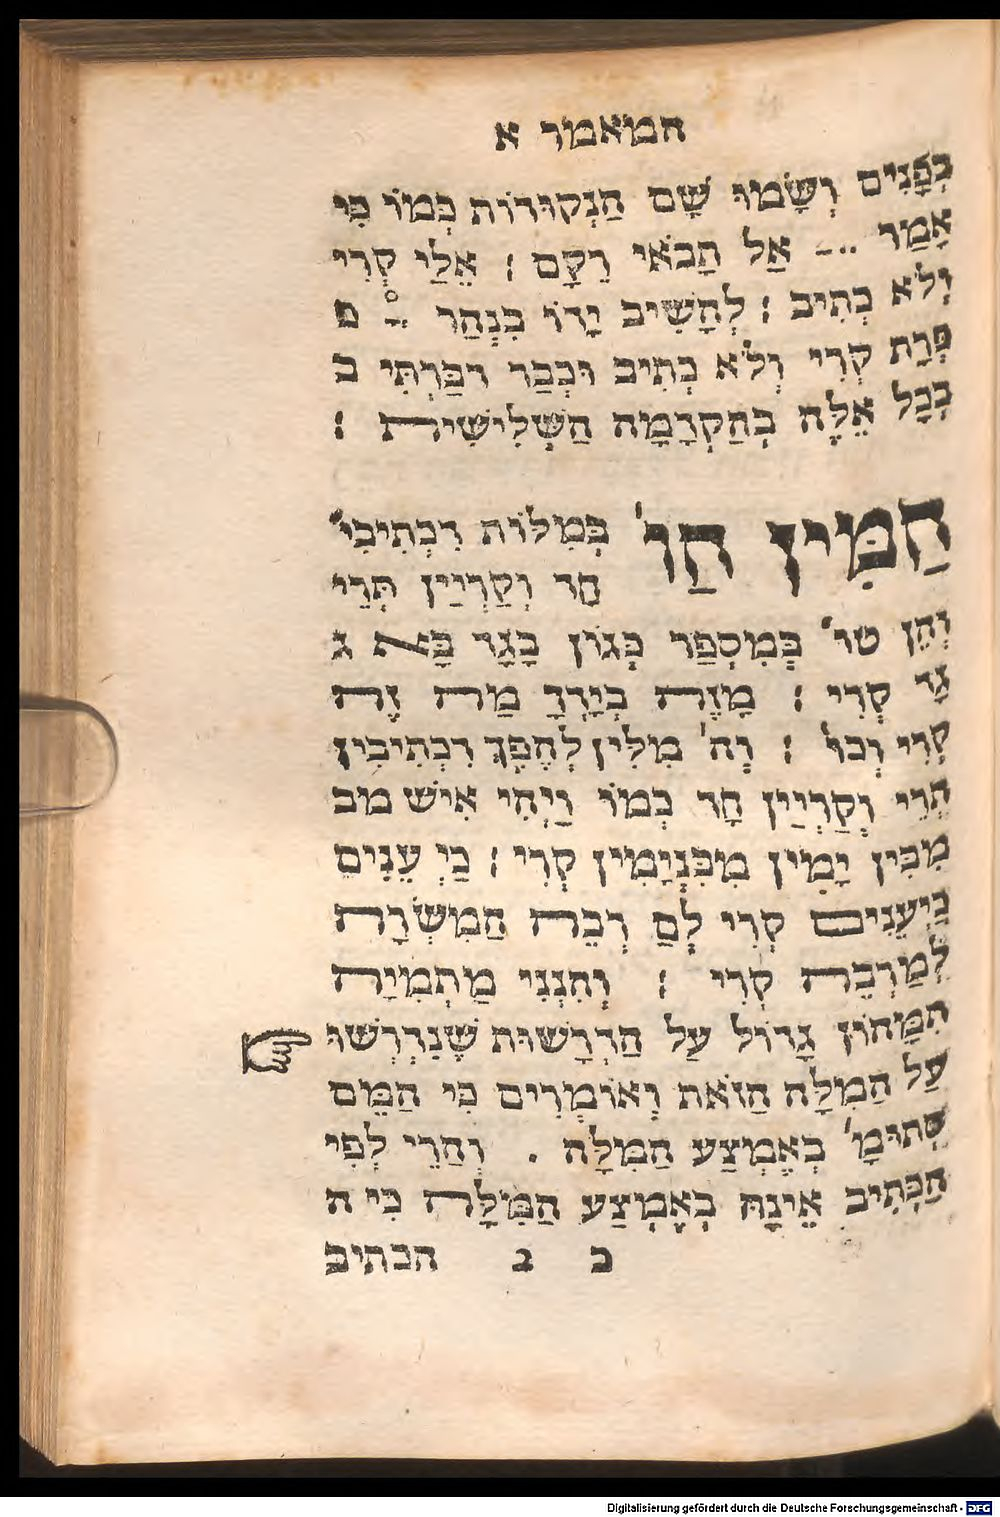 המאמר א
בִּפְנִים וְשָׂמוּ שָׁם הַנְּקוּדוֹת כְּמוֹ כִּי
אָמַר ֵ ָ אַל תָּבֹאִי רֵקָם : אֵלַי קְרִי
וְלֹא כְתִיב : לְהָשִׁיב יָדוֹ בִּנְהַר ְ ָ ם
פְּרָת קְרִי וְלֹא כְתִיב וּכְבַר דִּבַּרְתִּי ב
בְּכָל אֵלֶּה בְּהַקְדָּמָה הַשְּׁלִישִׁית :
הַמִּין הַו' בְּמִלּוֹת דִּכְתִיבִי'
חַד וְקַרְיָן תְּרֵי
וְהֵן טו' בְּמִסְפַּר כְּגוֹן בָּגָד בָּא ג
גָד קְרִי : מַזֶּה בְיָדְךָ מַה זֶּה
קְרִי וְכוּ' : וְה' מִלִּין לְהֶפֶךְ דִּכְתִיבִין
תְּרֵי וְקַרְיָן חַד כְּמוֹ וַיְהִי אִישׁ מב
מִבִּין יָמִין מִבִּנְיָמִין קְרִי : כַּי עֵנִים
כַּיְעֵנִים קְרִי לְםַ רְבֵּה הַמִּשְׂרָה
לְמַרְבֵּה קְרִי : וְהִנְנִי מַתְמִיהַּ
תִּמָּהוֹן גָּדוֹל עַל הַדְּרָשׁוֹת שֶׁנִּדְרְשׁוּ
עַל הַמִּלָּה הַזֹּאת וְאוֹמְרִים כִּי הַמֵּם
סְתוּמָ' בְּאֶמְצַע הַמִּלָּה . וַהֲרֵי לְפִי
הַכְּתִיב אֵינָהּ בְּאֶמְצַע הַמִּלָּה כִּי ה
כ ב הכתיב